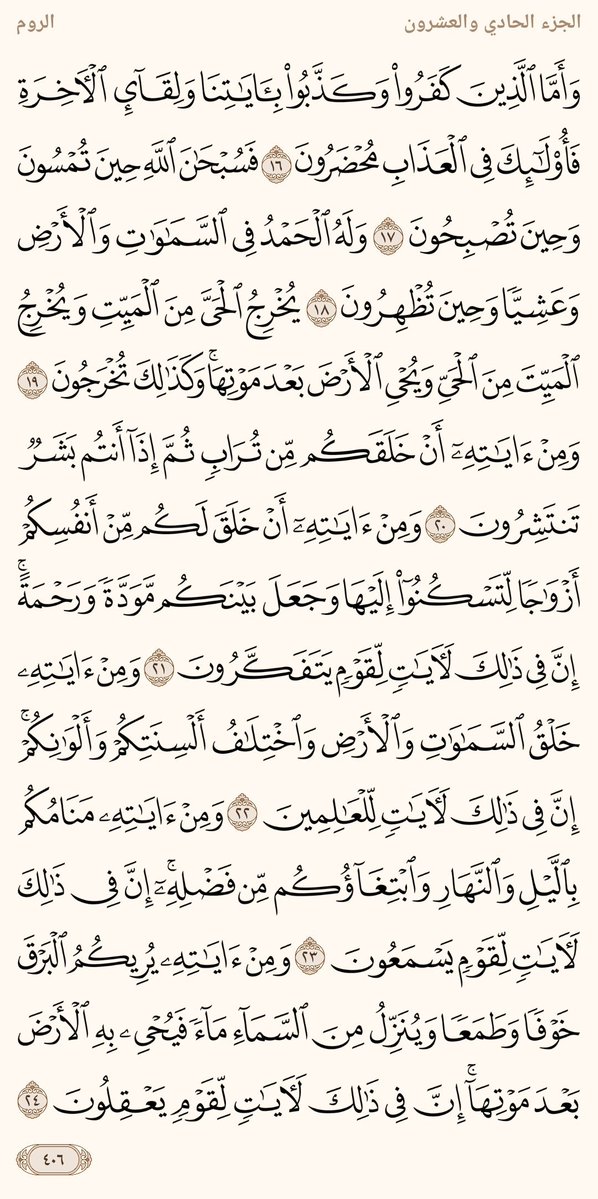 الجزء الحادي والعشرون الروم
وَأَمَّا ٱلَّذِينَ كَفَرُواْ وَكَذَّبُواْ بِـَٔايَٰتِنَا وَلِقَآيِٕ ٱلۡأٓخِرَةِ
فَأُوْلَٰٓئِكَ فِي ٱلۡعَذَابِ مُحۡضَرُونَ ١٦ فَسُبۡحَٰنَ ٱللَّهِ حِينَ تُمۡسُونَ
وَحِينَ تُصۡبِحُونَ ١٧ وَلَهُ ٱلۡحَمۡدُ فِي ٱلسَّمَٰوَٰتِ وَٱلۡأَرۡضِ
وَعَشِيّٗا وَحِينَ تُظۡهِرُونَ ١٨ يُخۡرِجُ ٱلۡحَيَّ مِنَ ٱلۡمَيِّتِ وَيُخۡرِجُ
ٱلۡمَيِّتَ مِنَ ٱلۡحَيِّ وَيُحۡيِ ٱلۡأَرۡضَ بَعۡدَ مَوۡتِهَاۚ وَكَذَٰلِكَ تُخۡرَجُونَ ١٩
وَمِنۡ ءَايَٰتِهِۦٓ أَنۡ خَلَقَكُم مِّن تُرَابٖ ثُمَّ إِذَآ أَنتُم بَشَرٞ
تَنتَشِرُونَ ٢٠ وَمِنۡ ءَايَٰتِهِۦٓ أَنۡ خَلَقَ لَكُم مِّنۡ أَنفُسِكُمۡ
أَزۡوَٰجٗا لِّتَسۡكُنُوٓاْ إِلَيۡهَا وَجَعَلَ بَيۡنَكُم مَّوَدَّةٗ وَرَحۡمَةًۚ
إِنَّ فِي ذَٰلِكَ لَأٓيَٰتٖ لِّقَوۡمٖ يَتَفَكَّرُونَ ٢١ وَمِنۡ ءَايَٰتِهِۦ
خَلۡقُ ٱلسَّمَٰوَٰتِ وَٱلۡأَرۡضِ وَٱخۡتِلَٰفُ أَلۡسِنَتِكُمۡ وَأَلۡوَٰنِكُمۡۚ
إِنَّ فِي ذَٰلِكَ لَأٓيَٰتٖ لِّلۡعَٰلِمِينَ ٢٢ وَمِنۡ ءَايَٰتِهِۦ مَنَامُكُم
بِٱلَّيۡلِ وَٱلنَّهَارِ وَٱبۡتِغَآؤُكُم مِّن فَضۡلِهِۦٓۚ إِنَّ فِي ذَٰلِكَ
لَأٓيَٰتٖ لِّقَوۡمٖ يَسۡمَعُونَ ٢٣ وَمِنۡ ءَايَٰتِهِۦ يُرِيكُمُ ٱلۡبَرۡقَ
خَوۡفٗا وَطَمَعٗا وَيُنَزِّلُ مِنَ ٱلسَّمَآءِ مَآءٗ فَيُحۡيِۦ بِهِ ٱلۡأَرۡضَ
بَعۡدَ مَوۡتِهَآۚ إِنَّ فِي ذَٰلِكَ لَأٓيَٰتٖ لِّقَوۡمٖ يَعۡقِلُونَ ٢٤
٤٠٦